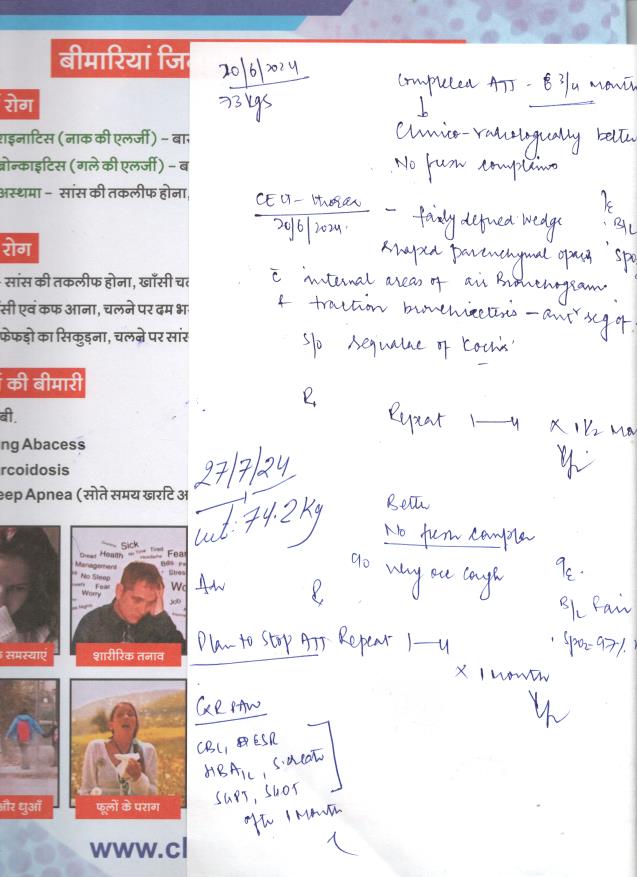 बीमारियां जि
रोग
राइनाटिस (नाक की एलर्जी) – बा
ब्रोन्काइटिस (गले की एलर्जी) – ब
अस्थमा – सांस की तकलीफ होना,
रोग
- सांस की तकलीफ होना, खाँसी च
सी एवं कफ आना, चलने पर दम भ
फेफड़ो का सिकुड़ना, चलने पर सांस
की बीमारी
बी.
ng Abacess
rcoidosis
eep Apnea (सोते समय खरटि अ
Sick
Dread Health No Time Tired
Headache Fear
Management Bills
No Sleep Stress
Fear
Worry
Job
समस्याएं
शारीरिक तनाव
और धुआँ
फूलों के पराग
www.cl
20/6/2024
73 kgs
Completed ATT - 8 3/4 month
Clinico-radiologically better
No fresh complains
CECT- thorax
20/6/2024.
- fairly defined wedge
shaped parenchymal opacity
O/E
B/L
SpO2
c̄ internal areas of air Bronchogram
& traction bronchiectasis - antr seg of
S/o sequalae of Koch's
Rx
Repeat 1—4 x 1 1/2 Mon
27/7/24
wt: 74.2 Kg
Better
No fresh complain
c/o very occ cough
O/E.
B/L
SpO2 97%
Adv
Plan to Stop ATT Repeat 1—4
x 1 month
CXR PAV
CBC, ESR
HBA1C, S. creat
SGPT, SGOT
after 1 month